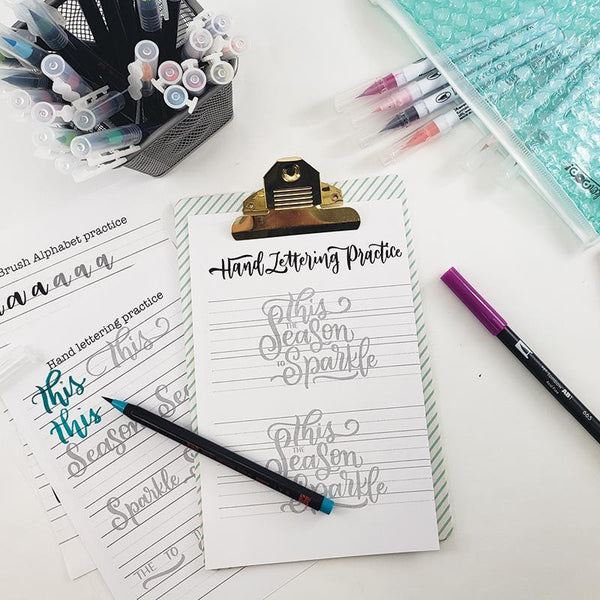 Hand Lettering Practice
this
THE
Season
TO
Sparkle
this
THE
Season
Sparkle
Brush Alphabet practice
a a a a a a
Hand lettering practice
this
this
this
Season Se
Sparkle
THE TO
665